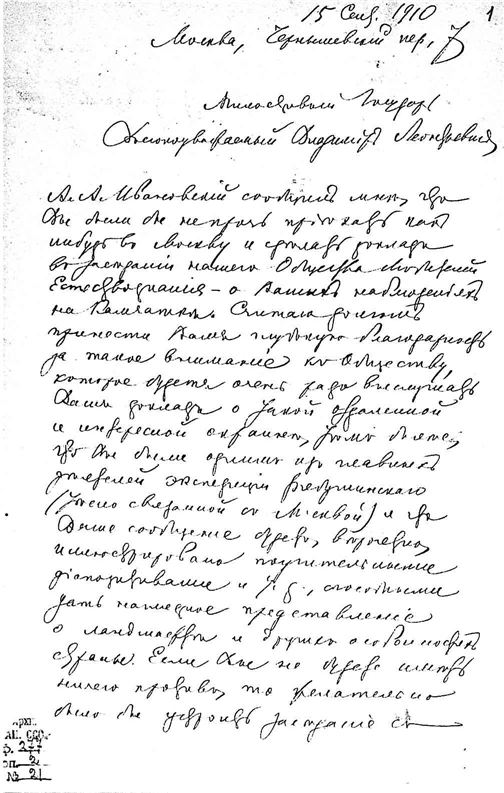 15 Сент. 1910
1
Москва, Чернышевский пер., 7
Милостивый Государь
Высокоуважаемый Владимир Леонтьевич,
А. А. Ивановский сообщил мне, что
Вы были бы не прочь приехать как
нибудь в Москву и сделать доклад
в заседании нашего Общества Любителей
Естествознания – о Ваших наблюдениях
на Камчатке. Считаю долгом
принести Вам глубокую благодарность
за такое внимание к Обществу,
которое будет очень радо выслушать
Ваш доклад о такой отдаленной
и интересной окраине, тем более,
что Вы были одним из главных
деятелей экспедиции Рябушинского
(тесно связанной с Москвой) и что
Ваше сообщение будет, вероятно,
иллюстрировано поучительными
діапозитивами и т. д., способными
дать наглядное представление
о ландшафте и других особенностях
страны. Если Вы не будете иметь
ничего против, то желательно
было бы устроить заседание с
АРХ.
АН. СССР
Ф. 277
ОП. 2
№ 21